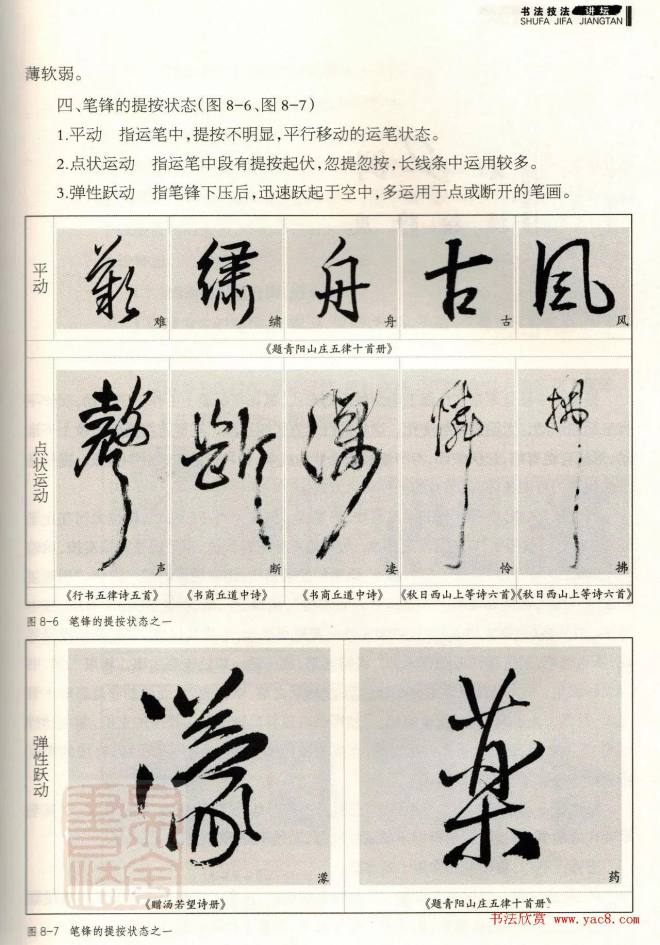 书法技法 讲坛
SHUFA JIFA JIANGTAN
薄软弱。
四、笔锋的提按状态(图8-6、图8-7)
1.平动 指运笔中,提按不明显,平行移动的运笔状态。
2.点状运动 指运笔中段有提按起伏,忽提忽按,长线条中运用较多。
3.弹性跃动 指笔锋下压后,迅速跃起于空中,多运用于点或断开的笔画。
平动
难 绣 舟 古 风
《题青阳山庄五律十首册》
点状运动
声 断 凄 怜 拂
《行书五律诗五首》 《书商丘道中诗》 《书商丘道中诗》 《秋日西山上等诗六首》 《秋日西山上等诗六首》
图8-6 笔锋的提按状态之一
弹性跃动
濛 药
《赠汤若望诗册》 《题青阳山庄五律十首册》
图8-7 笔锋的提按状态之一
书法欣赏 www.yac8.com